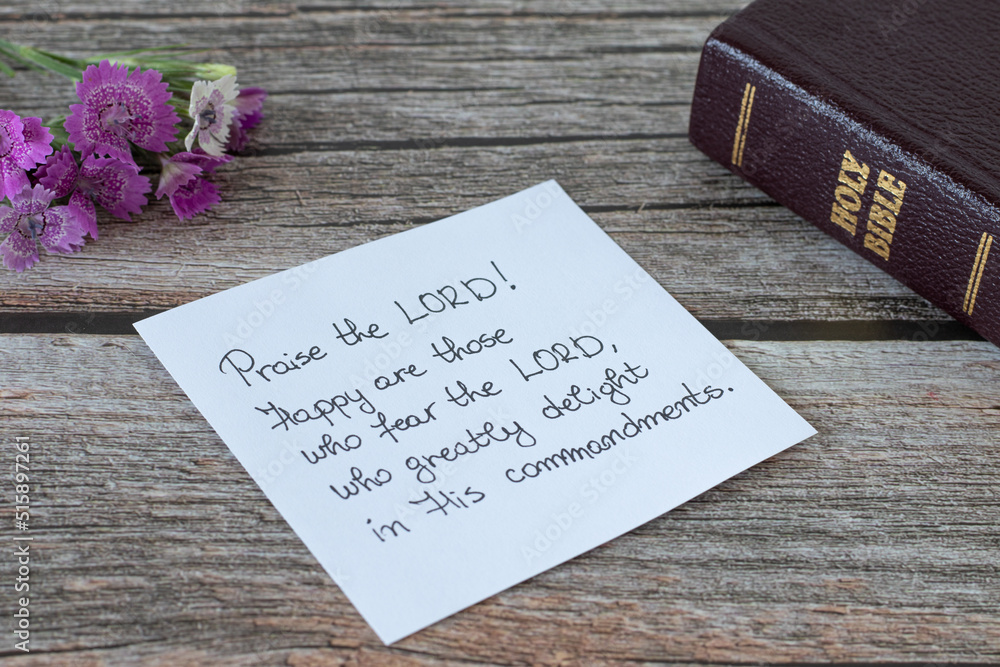 Praise the LORD!
Happy are those
who fear the LORD,
who greatly delight
in His commandments.
HOLY
BIBLE
Adobe Stock | #515897261